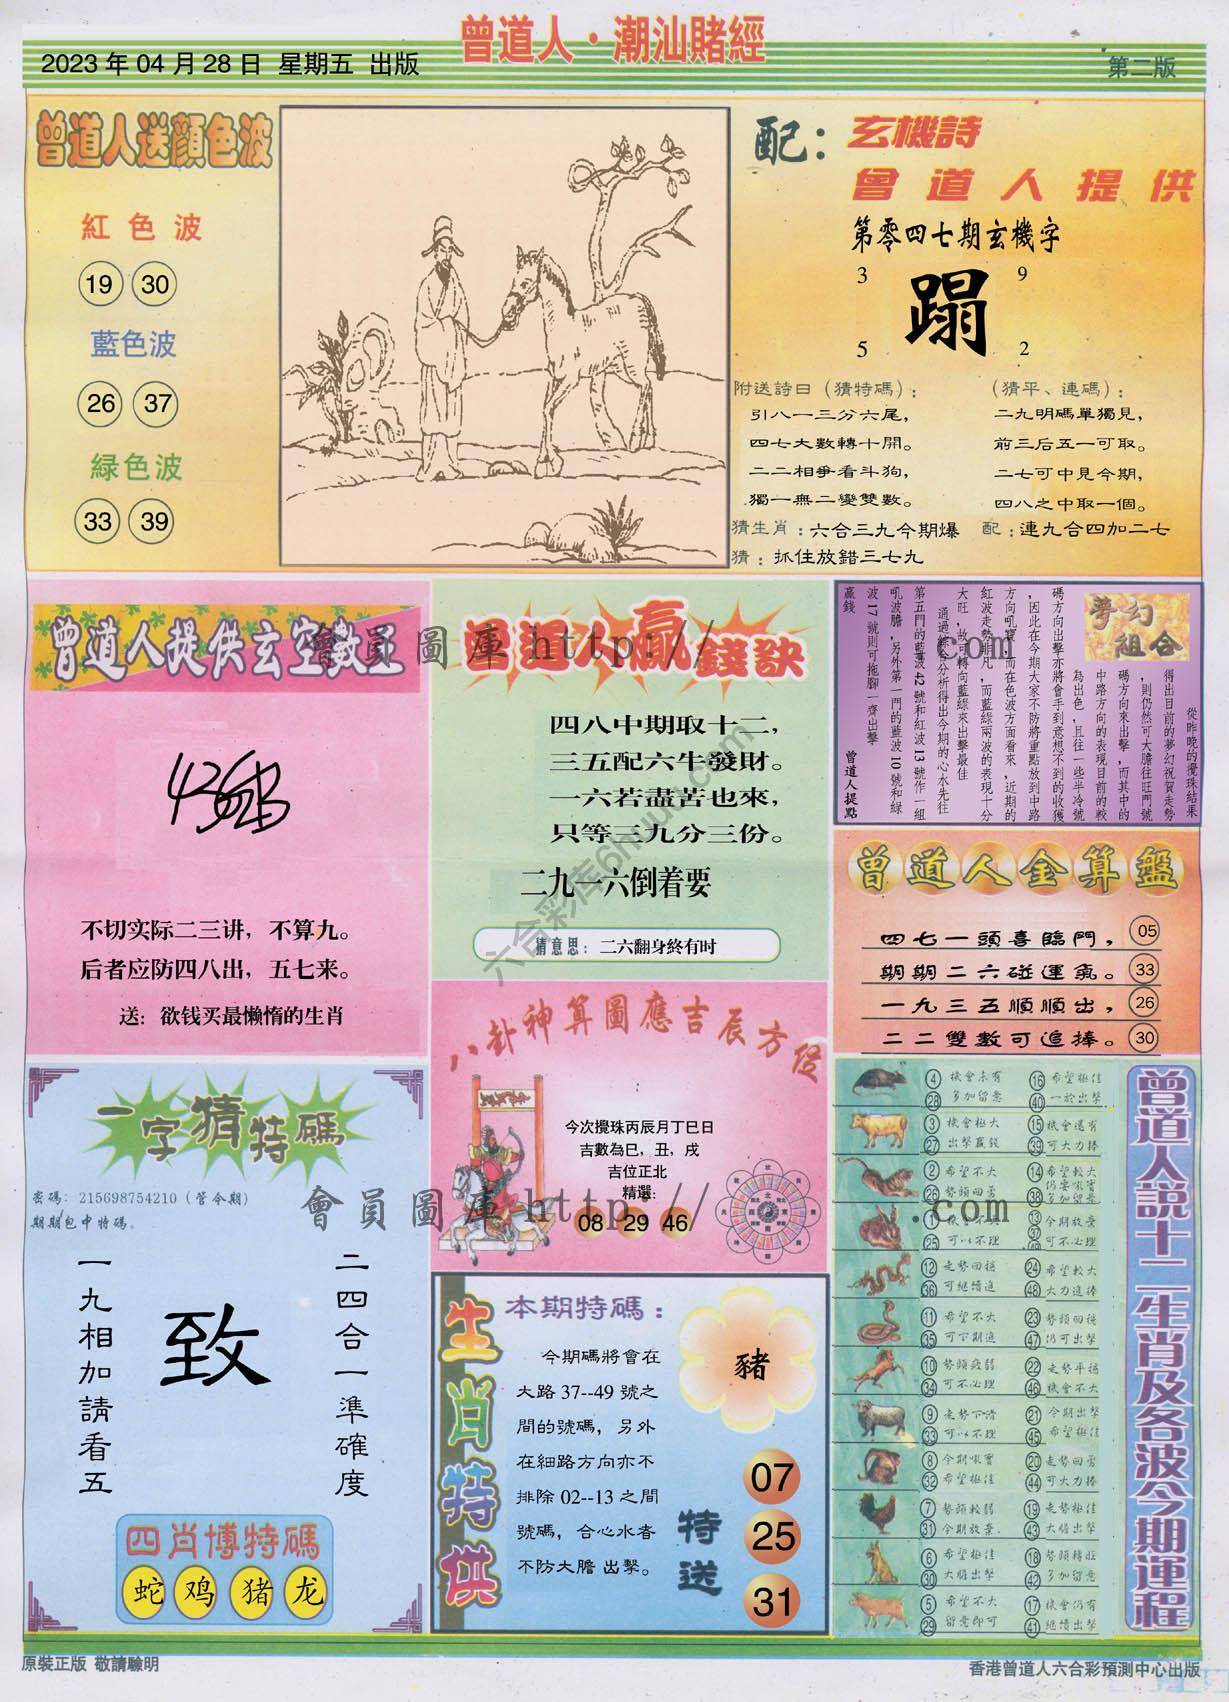 曾道人·潮汕賭經
2023 年 04 月 28 日  星期五  出版
第二版
曾道人送顏色波
紅色波
19 30
藍色波
26 37
緑色波
33 39
配：
玄機詩
曾道人提供
第零四七期玄機字
3 9
蹋
5 2
附送詩曰（猜特碼）：
引八一三分六尾，
四七大數轉十開。
二二相爭看斗狗，
獨一無二變雙數。
（猜平、連碼）：
二九明碼單獨見，
前三后五一可取。
二七可中見今期，
四八之中取一個。
猜生肖：六合三九今期爆
配：連九合四加二七
猜：抓住放錯三七九
曾道人提供玄空數正
不切实际二三讲，不算九。
后者应防四八出，五七来。
送：欲钱买最懒惰的生肖
曾道人贏錢訣
四八中期取十二，
三五配六牛發財。
一六若盡苦也來，
只等三九分三份。
二九一六倒着要
猜意思：二六翻身終有时
會員圖庫 http://
.com
六合彩库6htuku.com
夢幻組合
從昨晚的攪珠結果
得出目前的夢幻祝賀走勢
，則仍然可大膽往旺門號
碼方向來出擊，而其中的
中路方向的表現目前的較
為出色，且往一些半冷號
碼方向出擊亦將會手到意想不到的收獲
，因此在今期大家不防將重點放到中路
方向吼寶，而在色波方面看來，近期的
紅波走勢非凡，而藍綠兩波的表現十分
大旺，故可轉向藍綠來出擊最佳
通過綜合分析得出今期的心水先往
第五門的藍波 42 號和紅波 13 號作一組
吼波膽，另外第一門的藍波 10 號和綠
波 17 號則可拖腳一齊出擊
贏錢
曾道人提點
曾道人金算盤
四七一頭喜臨門， 05
期期二六碰運氣。 33
一九三五順順出， 26
二二雙數可追捧。 30
八卦神算圖應吉辰方位
今次攪珠丙辰月丁巳日
吉數為巳，丑，戌
吉位正北
精選：
08 29 46
會員圖庫 http://
.com
一字猜特碼
密碼：215698754210（管今期）
期期包中特碼。
一九相加請看五
致
二四合一準確度
四肖博特碼
蛇 鸡 猪 龙
生肖特供
本期特碼：
今期碼將會在
大路 37--49 號之
間的號碼，另外
在細路方向亦不
排除 02--13 之間
號碼，合心水者
不防大膽 出擊。
豬
特送
07
25
31
曾道人説十二生肖及各波今期運程
4 機會未有 16 希望極佳
28 多加留意 40 一於出擊
3 機會極大 15 機會還有
27 出擊贏錢 39 可大力捧
2 希望不大 14 希望較大
26 勢頭回勇 38 多加留意
25 可以不理 可不必理
12 走勢回穩 24 希望較大
36 可繼續進 48 大力進捧
11 希望不大 23 勢頭回穩
35 可下期進 47 仍可出擊
10 勢頭疲弱 22 走勢平穩
34 可不必理 46 機會不大
9 走勢下滑 21 今期出擊
33 可以不理 45 希望極佳
8 今期吼寶 20 走勢回勇
32 希望極佳 44 可大力捧
7 勢頭較弱 19 走勢極佳
31 今期放棄 43 大膽出擊
6 希望極佳 18 勢頭轉旺
30 大膽出擊 42 多加留意
5 希望不大 17 機會仍有
29 留意即可 41 繼續出擊
原裝正版  敬請驗明
香港曾道人六合彩預測中心出版